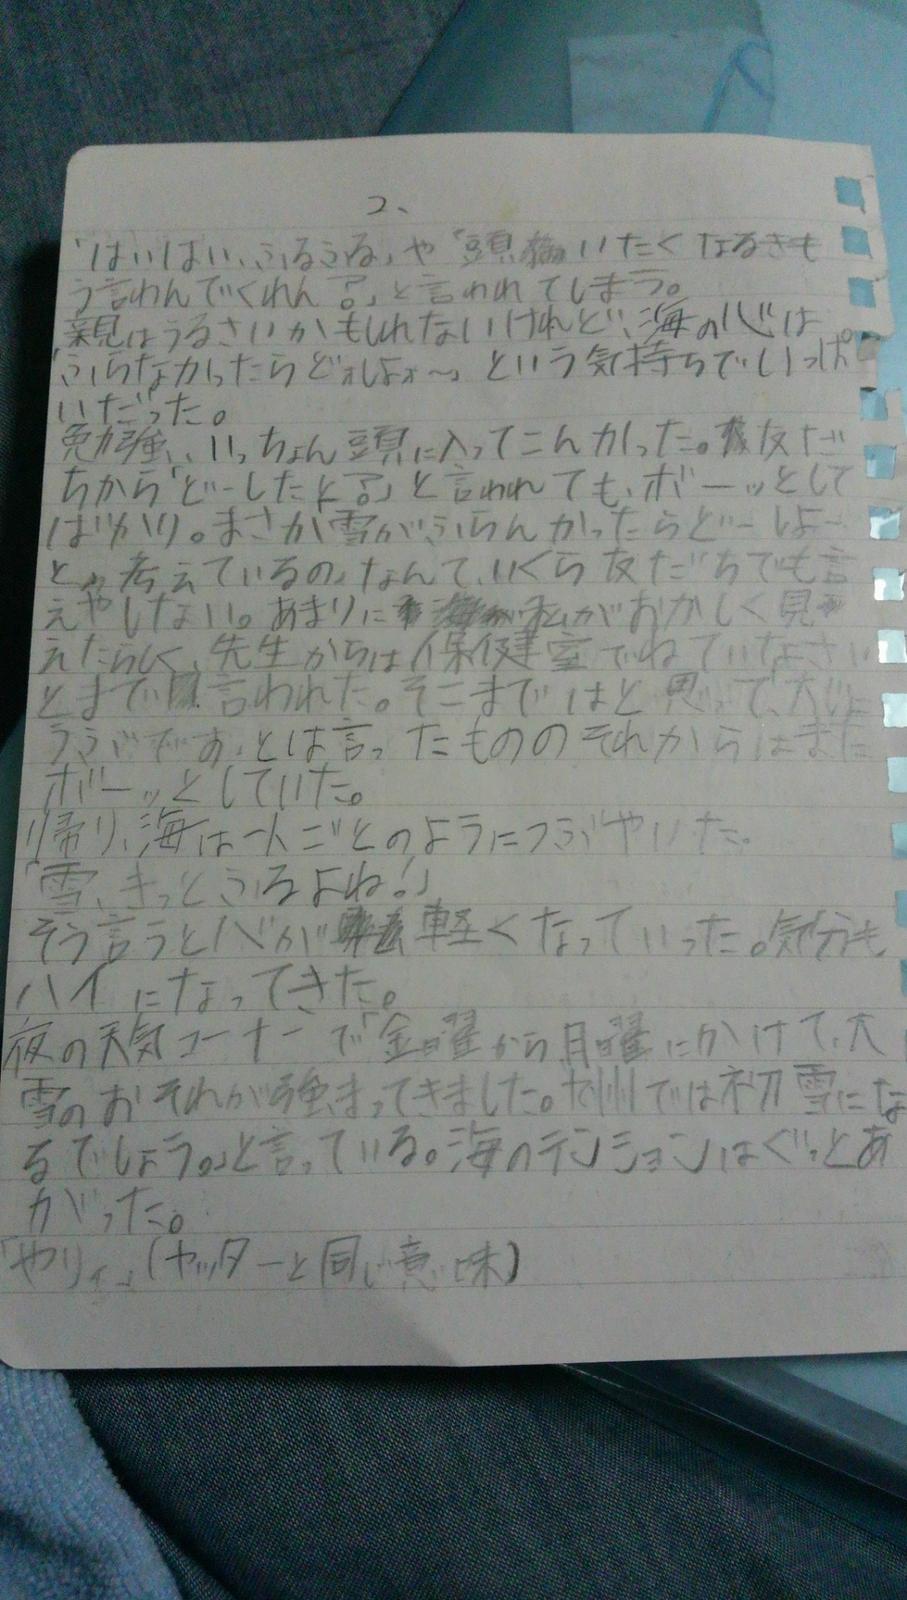 2、
「はいはい、ふるふる」や「頭いたくなるきも
う言わんでくれん？」と言われてしまう。
親はうるさいかもしれないけれど、海の心は
「ふらなかったらどォしよォ～」という気持ちでいっぱ
いだった。
勉強、いっちょん頭に入ってこんかった。友だ
ちから「どーしたと？」と言われても、ボーッとして
ばかり。まさか雪がふらんかったらどーしよー
と、考えているの、なんて、いくら友だちでも言
えやしない。あまりに私がおかしく見
えたらしく、先生からは保健室でねていなさい
とまで言われた。そこまではと思って、大じょ
うぶです、とは言ったもののそれからはまた
ボーッとしていた。
帰り、海は一人ごとのようにつぶやいた。
「雪、きっとふるよね！」
そう言うと心が軽くなっていった。気分も
ハイになってきた。
夜の天気コーナーで「金曜から月曜にかけて、大
雪のおそれが強まってきました。九州では初雪にな
るでしょう。」と言っている。海のテンションはぐっとあ
がった。
「やりィ」(ヤッターと同じ意味)